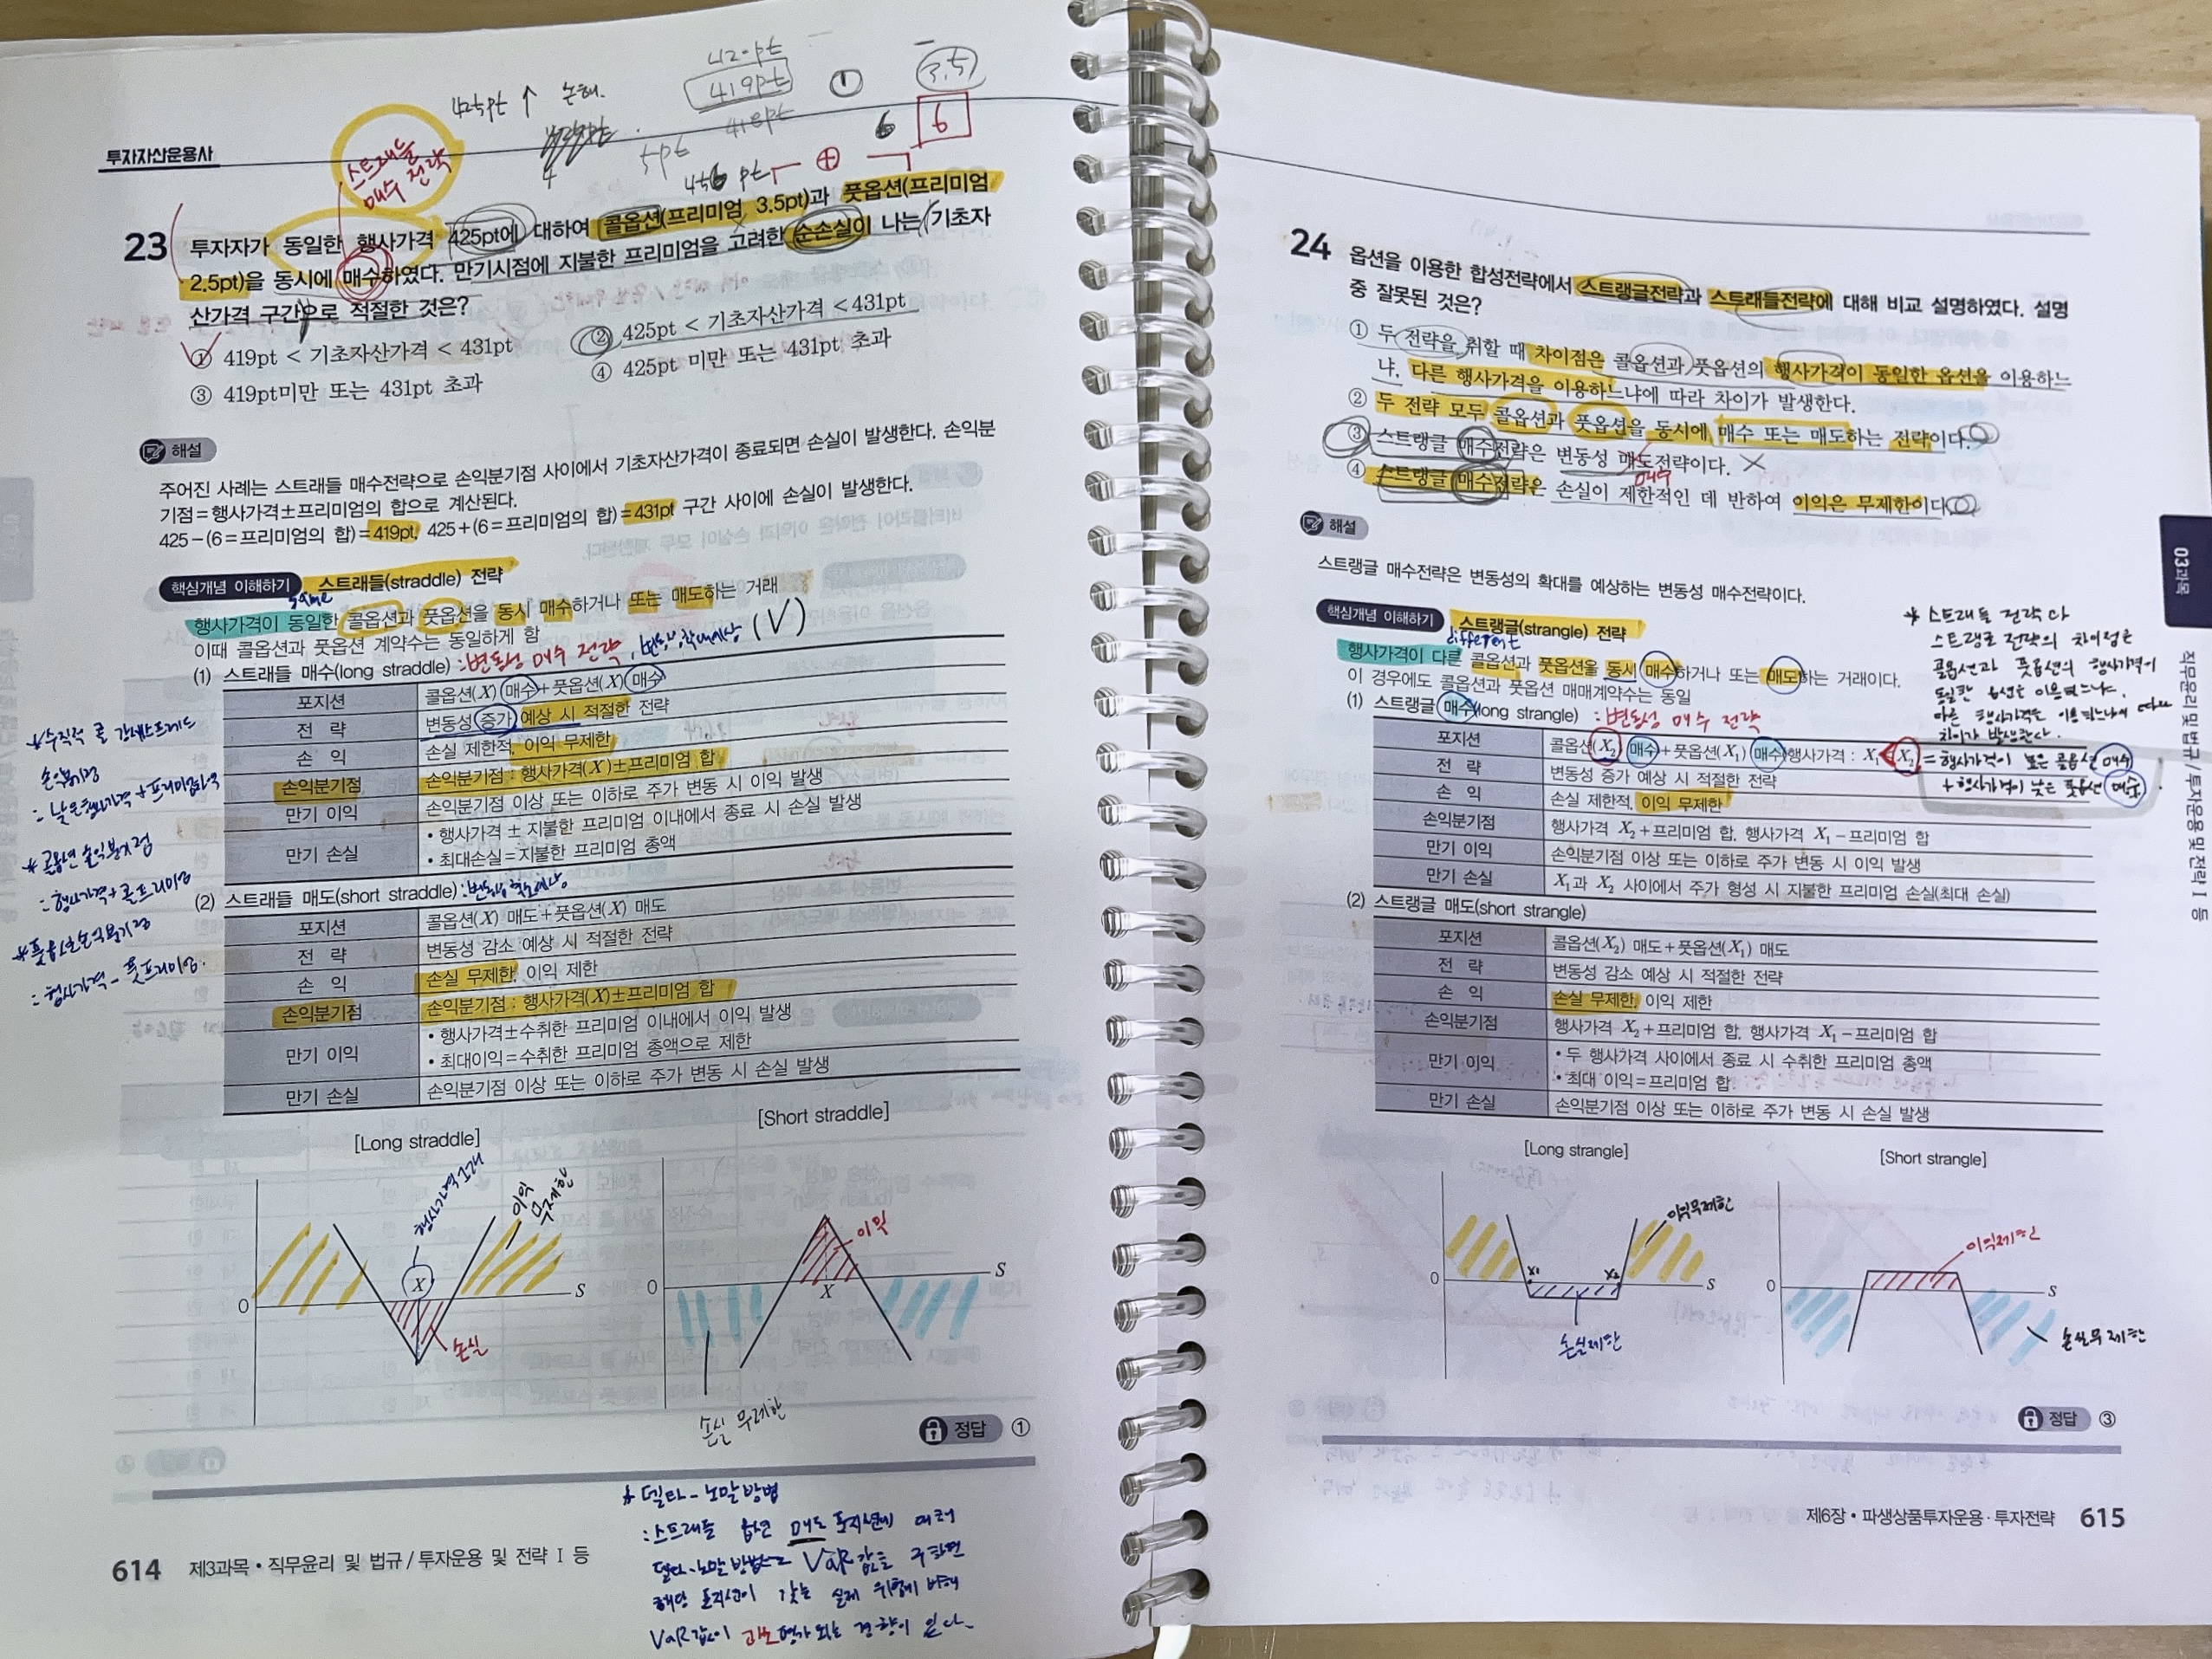 425pt ↑ 손해.
420pt
419pt
418pt
①
3.5
6 6
5pt
투자자산운용사
스트래들
매수 전략
23 투자자가 동일한 행사가격 425pt에 대하여 콜옵션(프리미엄 3.5pt)과 풋옵션(프리미엄
2.5pt)을 동시에 매수하였다. 만기시점에 지불한 프리미엄을 고려한 순손실이 나는 기초자
산가격 구간으로 적절한 것은?
① 419pt < 기초자산가격 < 431pt
② 425pt < 기초자산가격 < 431pt
③ 419pt미만 또는 431pt 초과
④ 425pt 미만 또는 431pt 초과
해설
주어진 사례는 스트래들 매수전략으로 손익분기점 사이에서 기초자산가격이 종료되면 손실이 발생한다. 손익분
기점=행사가격±프리미엄의 합으로 계산된다.
425-(6=프리미엄의 합)=419pt, 425+(6=프리미엄의 합)=431pt 구간 사이에 손실이 발생한다.
핵심개념 이해하기 스트래들(straddle) 전략
same
행사가격이 동일한 콜옵션과 풋옵션을 동시 매수하거나 또는 매도하는 거래
이때 콜옵션과 풋옵션 계약수는 동일하게 함
(1) 스트래들 매수(long straddle) : 변동성 매수 전략, 변동성 확대예상 (V)
포지션 콜옵션(X) 매수+풋옵션(X) 매수
전 략 변동성 증가 예상 시 적절한 전략
손 익 손실 제한적, 이익 무제한
손익분기점 손익분기점 : 행사가격(X)±프리미엄 합
만기 이익 손익분기점 이상 또는 이하로 주가 변동 시 이익 발생
만기 손실 • 행사가격 ± 지불한 프리미엄 이내에서 종료 시 손실 발생
• 최대손실=지불한 프리미엄 총액
(2) 스트래들 매도(short straddle) : 변동성 축소예상
포지션 콜옵션(X) 매도+풋옵션(X) 매도
전 략 변동성 감소 예상 시 적절한 전략
손 익 손실 무제한, 이익 제한
손익분기점 손익분기점 : 행사가격(X)±프리미엄 합
만기 이익 • 행사가격±수취한 프리미엄 이내에서 이익 발생
• 최대이익=수취한 프리미엄 총액으로 제한
만기 손실 손익분기점 이상 또는 이하로 주가 변동 시 손실 발생
* 수직적 콜 강세스프레드
손익분기점
: 낮은행사가격 + 프리미엄차액
* 콜옵션 손익분기점
: 행사가격+콜프리미엄
* 풋옵션손익분기점
: 행사가격 - 풋프리미엄.
[Long straddle]
행사가격 1개
이익
무제한
X
0
S
손실
[Short straddle]
이익
0
X
S
손실 무제한
정답 ①
* 델타-노말방법
: 스트래들 옵션 매도 포지션에 대해
델타-노말방법으로 VaR값을 구하면
해당 포지션이 갖는 실제 위험에 비해
VaR값이 과소평가 되는 경향이 있다.
614 제3과목 • 직무윤리 및 법규 / 투자운용 및 전략 Ⅰ 등
24 옵션을 이용한 합성전략에서 스트랭글전략과 스트래들전략에 대해 비교 설명하였다. 설명
중 잘못된 것은?
① 두 전략을 취할 때 차이점은 콜옵션과 풋옵션의 행사가격이 동일한 옵션을 이용하느
냐, 다른 행사가격을 이용하느냐에 따라 차이가 발생한다.
② 두 전략 모두 콜옵션과 풋옵션을 동시에 매수 또는 매도하는 전략이다.
③ 스트랭글 매수전략은 변동성 매도전략이다. ×
매수
④ 스트랭글 매수전략은 손실이 제한적인 데 반하여 이익은 무제한이다.
해설
스트랭글 매수전략은 변동성의 확대를 예상하는 변동성 매수전략이다.
핵심개념 이해하기 스트랭글(strangle) 전략
different
행사가격이 다른 콜옵션과 풋옵션을 동시 매수하거나 또는 매도하는 거래이다.
이 경우에도 콜옵션과 풋옵션 매매계약수는 동일
(1) 스트랭글 매수(long strangle) : 변동성 매수 전략
포지션 콜옵션(X₂) 매수+풋옵션(X₁) 매수(행사가격 : X₁<X₂) = 행사가격이 높은 콜옵션 매수
+ 행사가격이 낮은 풋옵션 매수.
전 략 변동성 증가 예상 시 적절한 전략
손 익 손실 제한적, 이익 무제한
손익분기점 행사가격 X₂+프리미엄 합, 행사가격 X₁-프리미엄 합
만기 이익 손익분기점 이상 또는 이하로 주가 변동 시 이익 발생
만기 손실 X₁과 X₂ 사이에서 주가 형성 시 지불한 프리미엄 손실(최대 손실)
(2) 스트랭글 매도(short strangle)
포지션 콜옵션(X₂) 매도+풋옵션(X₁) 매도
전 략 변동성 감소 예상 시 적절한 전략
손 익 손실 무제한, 이익 제한
손익분기점 행사가격 X₂+프리미엄 합, 행사가격 X₁-프리미엄 합
만기 이익 • 두 행사가격 사이에서 종료 시 수취한 프리미엄 총액
• 최대 이익=프리미엄 합
만기 손실 손익분기점 이상 또는 이하로 주가 변동 시 손실 발생
* 스트래들 전략과
스트랭글 전략의 차이점은
콜옵션과 풋옵션의 행사가격이
동일한 옵션을 이용하느냐,
다른 행사가격을 이용하느냐에 따라
차이가 발생한다.
[Long strangle]
이익무제한
X1
X2
0
S
손실제한
[Short strangle]
이익제한
0
S
손실무제한
정답 ③
03과목
직무윤리 및 법규 / 투자운용 및 전략 Ⅰ 등
제6장 • 파생상품투자운용 · 투자전략 615